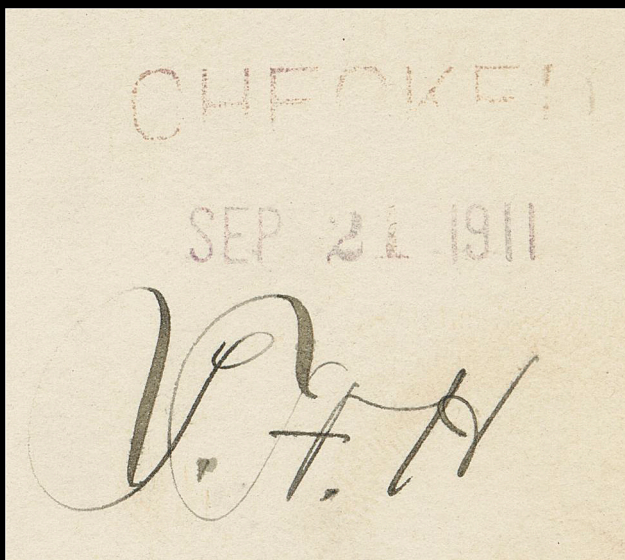 CHECKED
SEP 21 1911
V. F. H